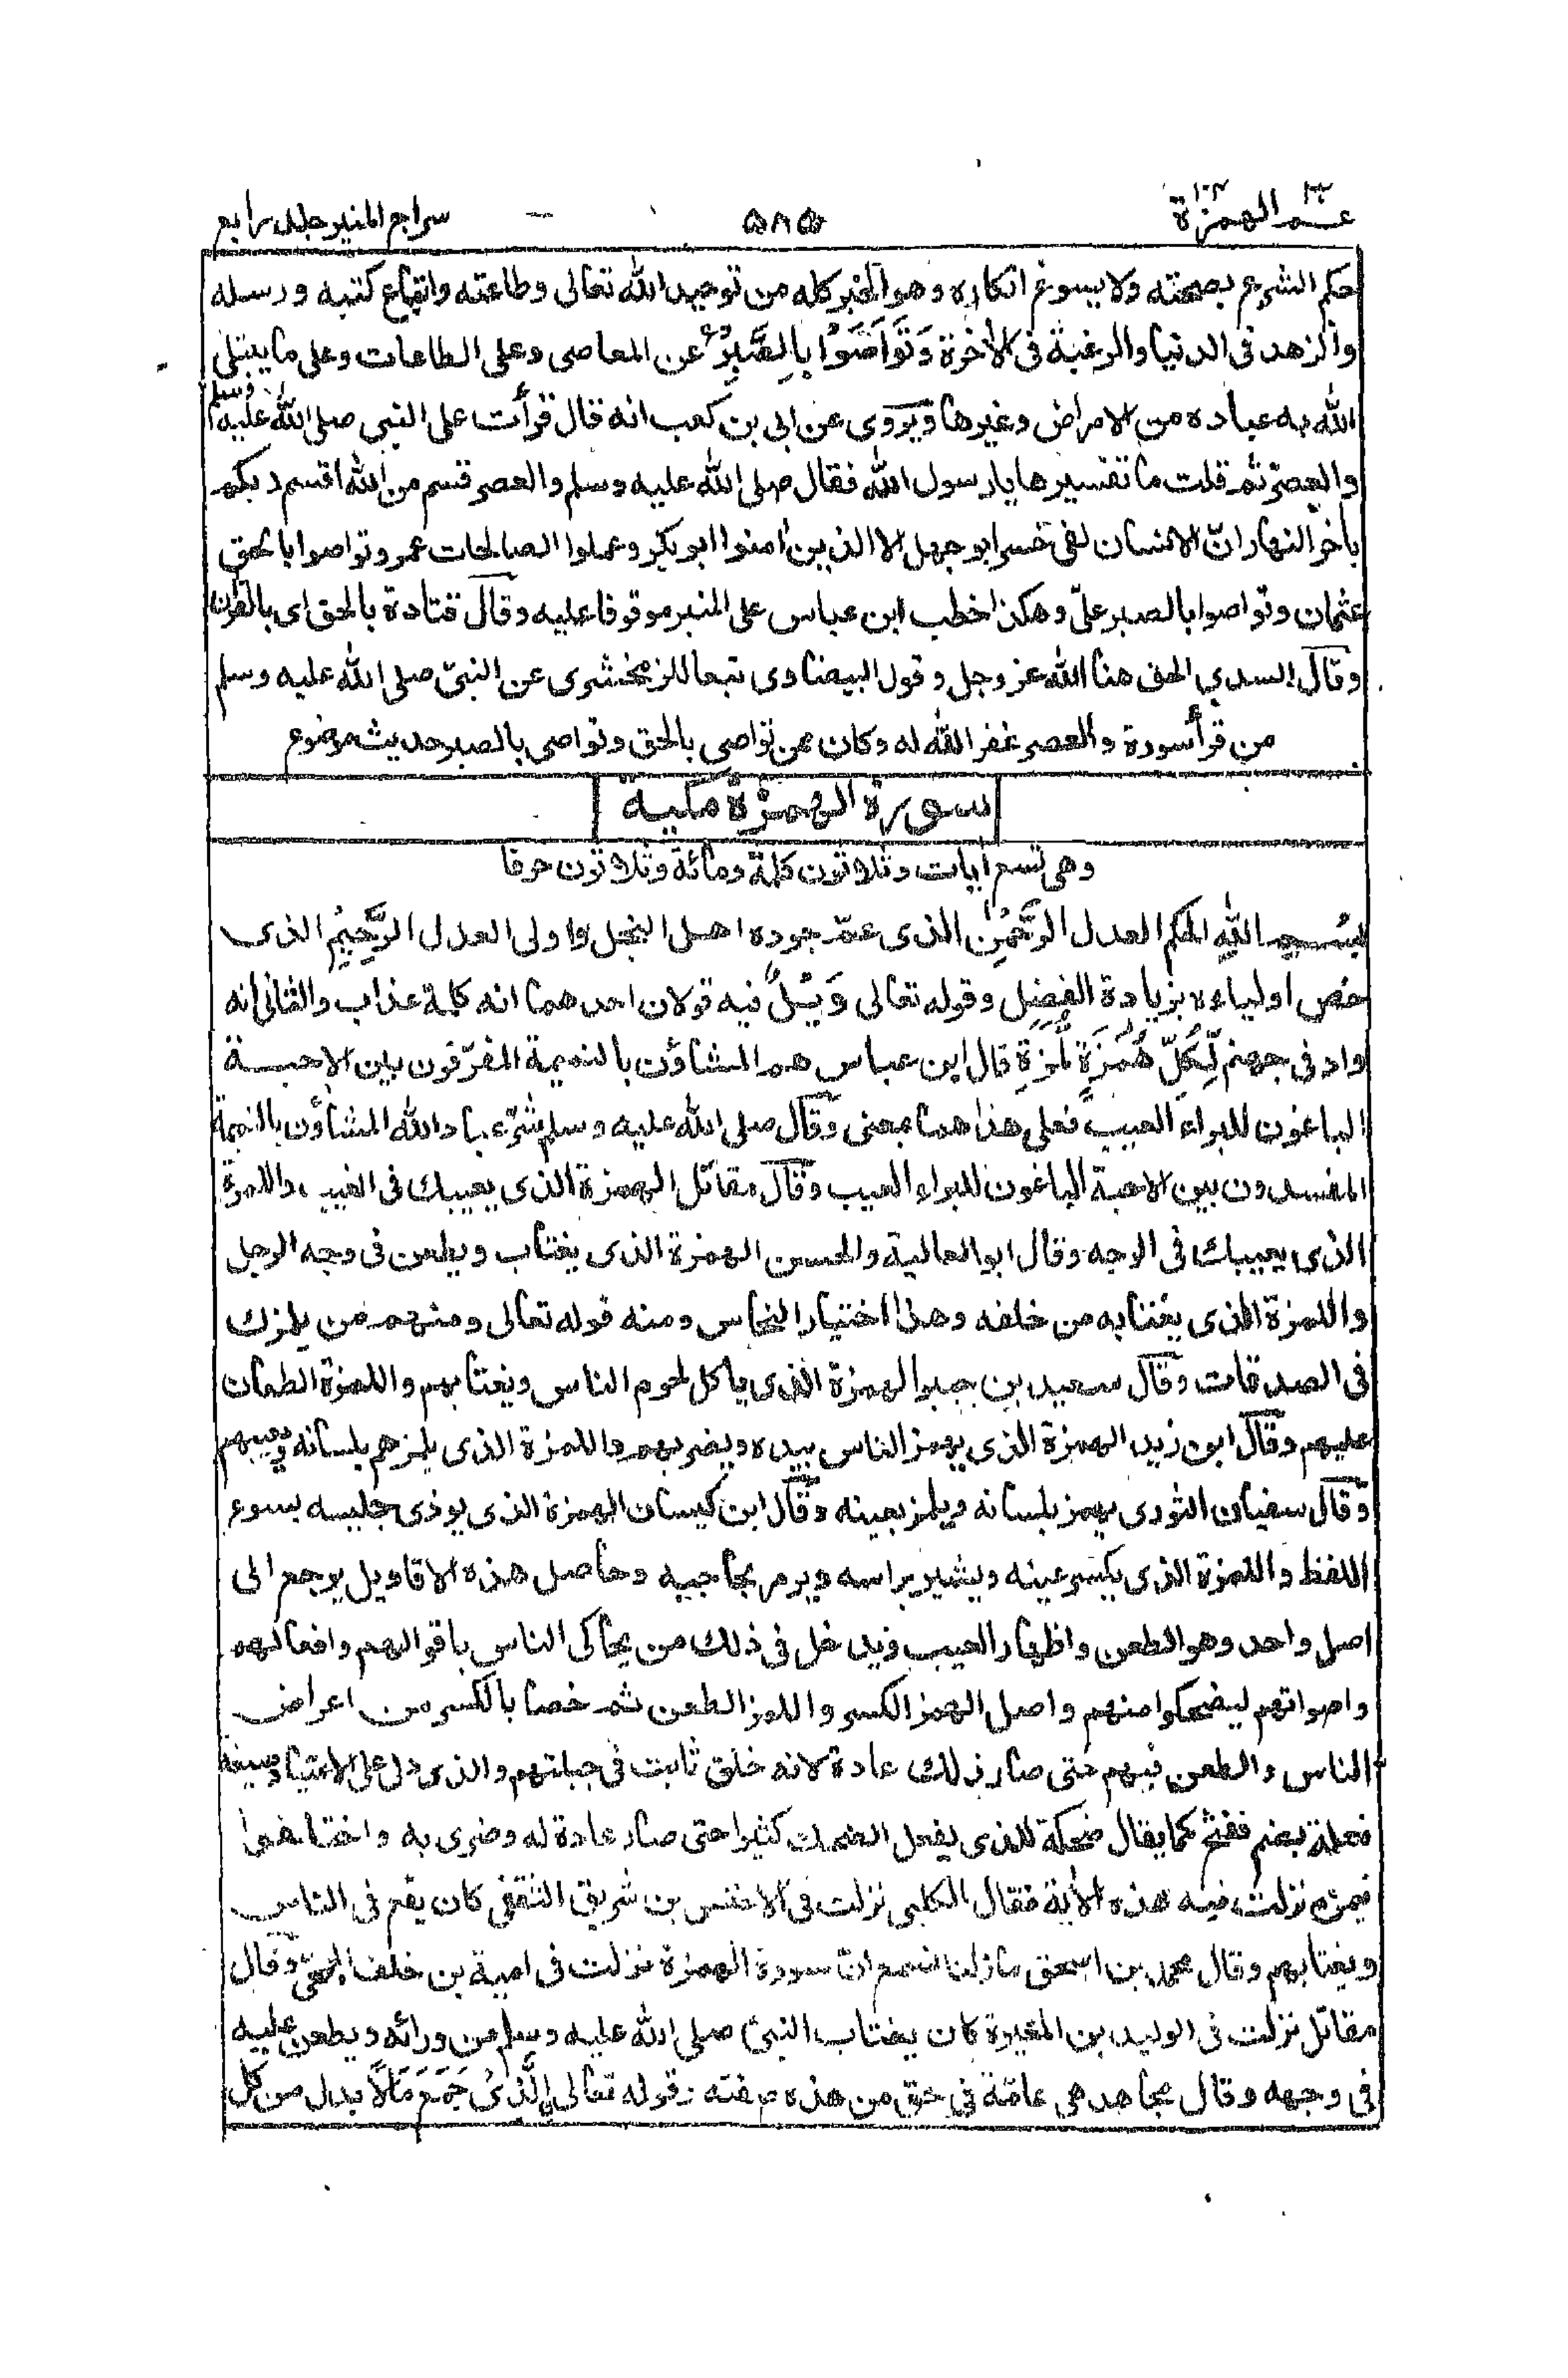 عـم ٣٠ الهمزة ١٠٤
٥٨٥
سراج المنير جلد رابع
حكم الشرع بصحته ولا يسوغ انكاره وهو الخير كله من توحيد الله تعالى وطاعته واتباع كتبه ورسله
والزهد فى الدنيا والرغبة فى الأخرة وَتَوَاصَوْا بِالصَّبْرِ عن المعاصى وعلى الطاعات وعلى ما يبتلى
الله به عباده من الامراض وغيرها ويروى عن ابى بن كعب انه قال قرأت على النبي صلى الله عليه وسلم
والعصر ثم قلت ما تفسيرها يا رسول الله فقال صلى الله عليه وسلم والعصر قسم من الله اقسم ربكم
بأخر النهار انّ الانسان لفى خسر ابو جهل الا الذين أمنوا ابو بكر وعملوا الصالحات عمر وتواصوا بالحق
عثمان وتواصوا بالصبر علىّ وهكذا خطب ابن عباس على المنبر موقوفا عليه وقال قتادة بالحق اى بالقرأن
وقال السدي الحق هنا الله عز وجل وقول البيضاوى تبعا للزمخشرى عن النبىّ صلى الله عليه وسلم
من قرأ سورة والعصر غفر الله له وكان ممن تواصى بالحق وتواصى بالصبر حديث موضوع
سورة الهمزة مكية
وهى تسع ايات وثلاثون كلمة ومائة وثلاثون حرفا
بِسْمِ اللّٰهِ الحكم العدل الرَّحْمٰنِ الذى عمّ جوده اهل البخل واولى العدل الرَّحِيْمِ الذى
خص اولياءه بزيادة الفضل وقوله تعالى وَيْلٌ فيه قولان احدهما انه كلمة عذاب والثانى انه
واد فى جهنم لِّكُلِّ هُمَزَةٍ لُّمَزَةٍ قال ابن عباس هم المشاؤن بالنميمة المفرّقون بين الاحبة
الباغون للبراء العيب فعلى هذا هما بمعنى وقال صلى الله عليه وسلم شرّ عباد الله المشاؤن بالنميمة
المفسدون بين الاحبة الباغون للبراء العيب وقال مقاتل الهمزة الذى يعيبك فى الغيب واللمزة
الذى يعيبك فى الوجه وقال ابو العالية والحسن الهمزة الذى يغتاب ويطعن فى وجه الرجل
واللمزة الذى يغتابه من خلفه وهذا اختيار النحاس ومنه قوله تعالى ومنهم من يلمزك
فى الصدقات وقال سعيد بن جبير الهمزة الذى ياكل لحوم الناس ويغتابهم واللمزة الطعان
عليهم وقال ابن زيد الهمزة الذى يهمز الناس بيده ويضربهم واللمزة الذى يلمزهم بلسانه ويعيبهم
وقال سفيان الثورى يهمز بلسانه ويلمز بعينه وقال ابن كيسان الهمزة الذى يوذى جليسه بسوء
اللفظ واللمزة الذى يكسر عينه ويشير براسه ويرمز بحاجبيه وحاصل هذه الاقاويل يرجع الى
اصل واحد وهو الطعن واظهار العيب ويدخل فى ذلك من يحاكى الناس باقوالهم وافعالهم
واصواتهم ليضحكوا منهم واصل الهمز الكسر واللمز الطعن ثم خصا بالكسر من اعراض
الناس والطعن فيهم حتى صار ذلك عادة لانه خلق ثابت فى جبلتهم والذى دل على الاعتياد صيغة
فعلة بضم ففتح كما يقال ضحكة للذى يفعل الضحك كثيرا حتى صار عادة له وضرى به واختلفوا
فيمن نزلت فيه هذه الأية فقال الكلبى نزلت فى الاخنس بن شريق الثقفى كان يقع فى الناس
ويغتابهم وقال محمد بن اسحق مازلنا نسمع انّ سورة الهمزة نزلت فى امية بن خلف الجمحى وقال
مقاتل نزلت فى الوليد بن المغيرة كان يغتاب النبىّ صلى الله عليه وسلم من ورائه ويطعن عليه
فى وجهه وقال مجاهد هى عامّة فى حق من هذه صفته وقوله تعالى الَّذِىْ جَمَعَ مَالًا بدل من كل